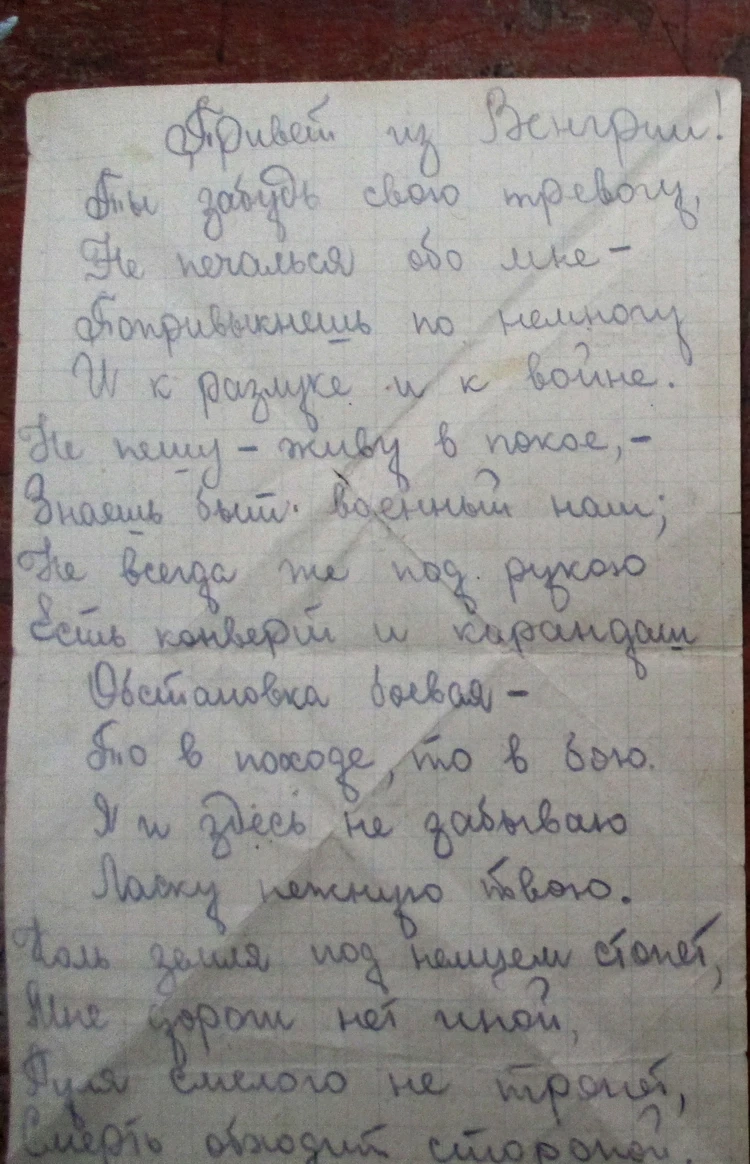 Привет из Венгрии!
Ты забудь свою тревогу,
Не печалься обо мне –
Попривыкнешь по немногу
И к разлуке и к войне.
Не пешу – живу в покое, –
Знаешь быт военный наш;
Не всегда же под рукою
Есть конверт и карандаш
Обстановка боевая –
То в походе, то в бою.
Я и здесь не забываю
Ласку нежную твою.
Коль земля под немцем стонет,
Мне дорог нет иной,
Пуля смелого не тронет,
Смерть обходит стороной.